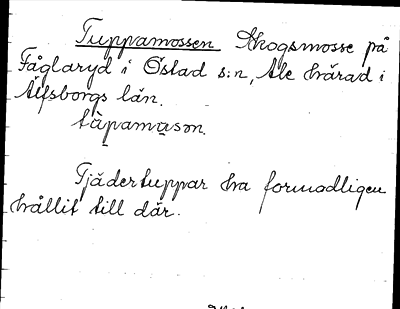 Tuppamossen Skogsmosse på
Fåglaryd i Östad s:n, Ale härad i
Älfsborgs län.
tùpamason.
Tjädertuppar ha formodligen
hållit till där.